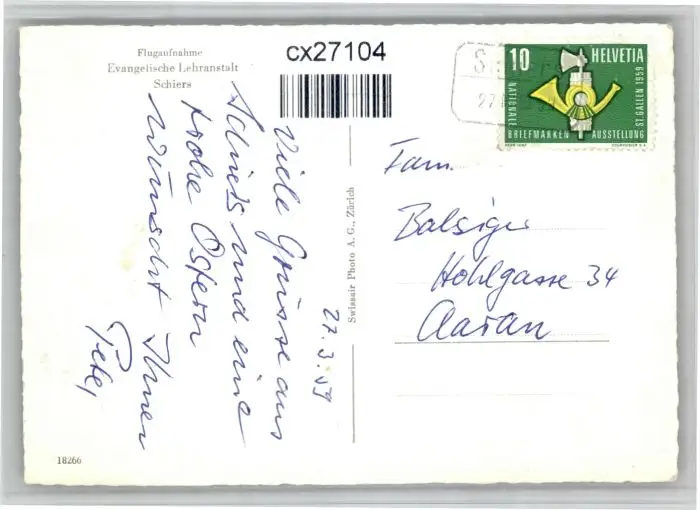 Flugaufnahme
Evangelische Lehranstalt
Schiers
cx27104
10 HELVETIA
NATIONALE
BRIEFMARKEN AUSSTELLUNG
ST. GALLEN 1959
COURVOISIER S.A.
27.3.59
Viele Grüsse aus
Schiers und eine
frohe Ostern
wünscht Ihnen
Peter
Swissair Photo A. G., Zürich
Fam.
Balsiger
Hohlgasse 34
Aarau
18266